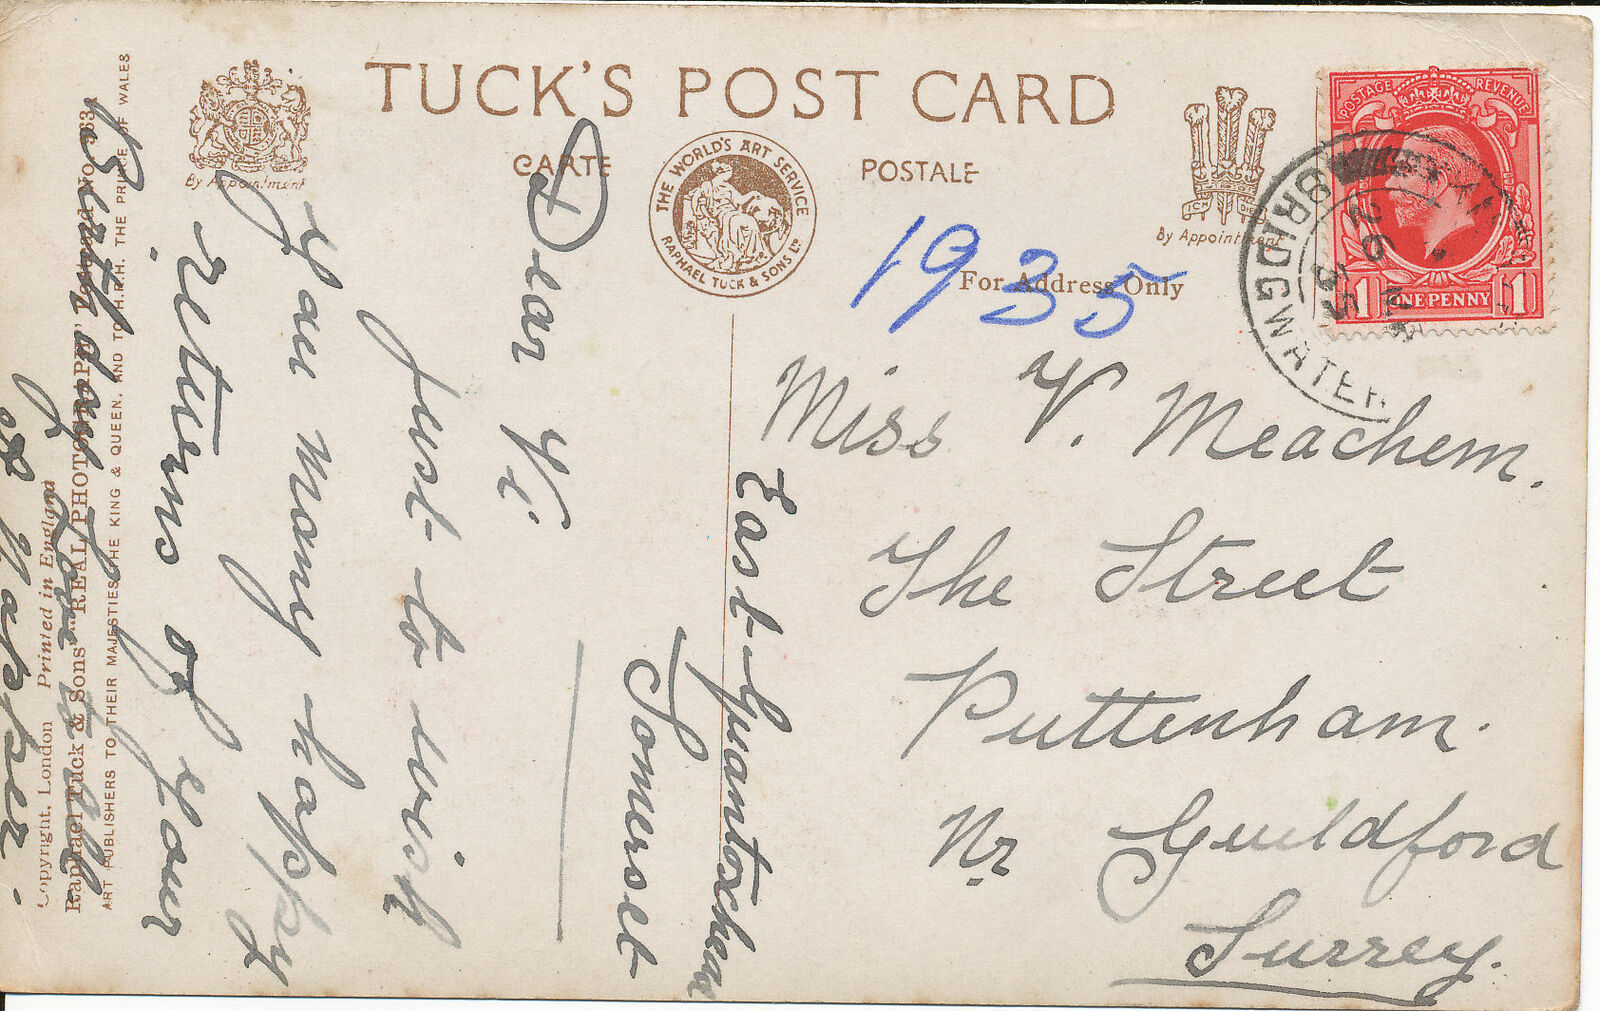 TUCK'S POST CARD
CARTE POSTALE
By Appointment
THE WORLD'S ART SERVICE
RAPHAEL TUCK & SONS LD
By Appointment
For Address Only
1935
POSTAGE REVENUE
1 ONE PENNY 1
BRIDGWATER
26
35
Miss V. Meachem.
The Street
Puttenham.
Nr Guildford
Surrey.
East-Quantoxhead
Somerset
Dear Vi.
Just to wish
you many happy
returns of your
Birthday
Napper.
ART PUBLISHERS TO THEIR MAJESTIES THE KING & QUEEN, AND TO H.R.H. THE PRINCE OF WALES
Raphael Tuck & Sons' "REAL PHOTOGRAPH"
Copyright, London Printed in England